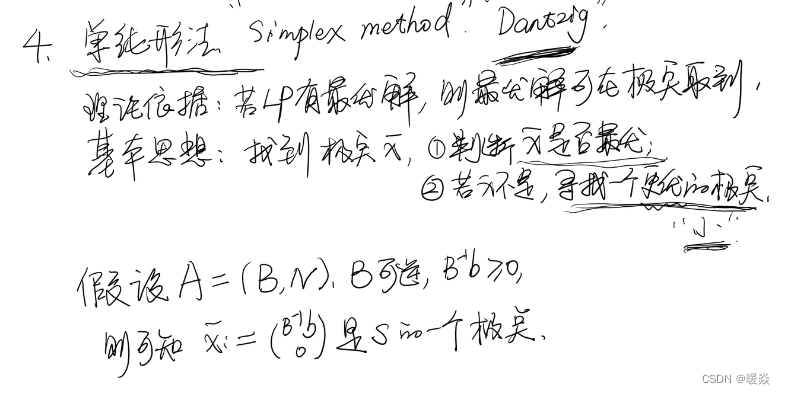 4. 单纯形法 "Simplex method". Dantzig.
理论依据：若LP有最优解，则最优解可在极点取到，
基本思想：找到极点x̄，①判断x̄是否最优；
②若x̄不是，寻找一个更优的极点．
"小"
假设A=(B,N)．B可逆，B⁻¹b≥0，
则可知 x̄:=(B⁻¹b 0)是S的一个极点．
CSDN @暖焱